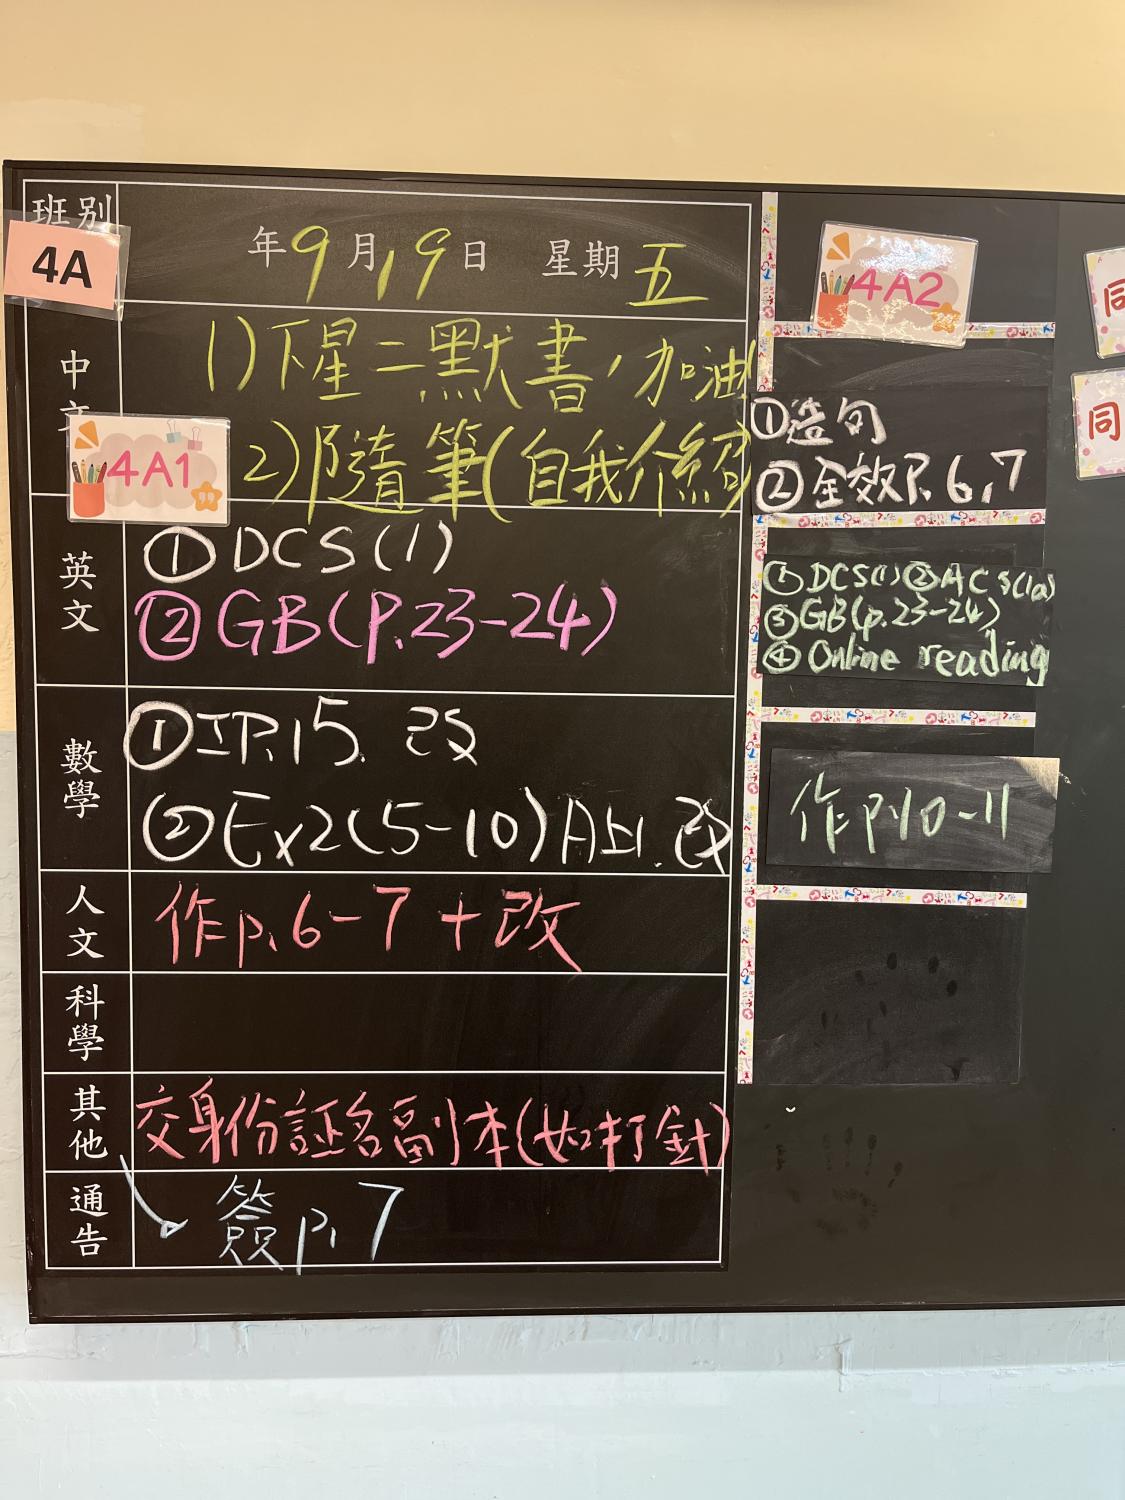 班別
4A
年9月19日 星期五
中文
4A1
1)下星二默書，加油
2)隨筆(自我介紹)
英文
①DCS(1)
②GB(P.23-24)
數學
①IP.15. 改
②Ex2(5-10) 改
人文
作p.6-7+改
科學
其他
交身份証名副本(如打針)
通告
簽p.7
4A2
①造句
②全效P.6,7
①DCS(1)②ACS(1a)
③GB(p.23-24)
④Online reading
作p.10-11
同
同